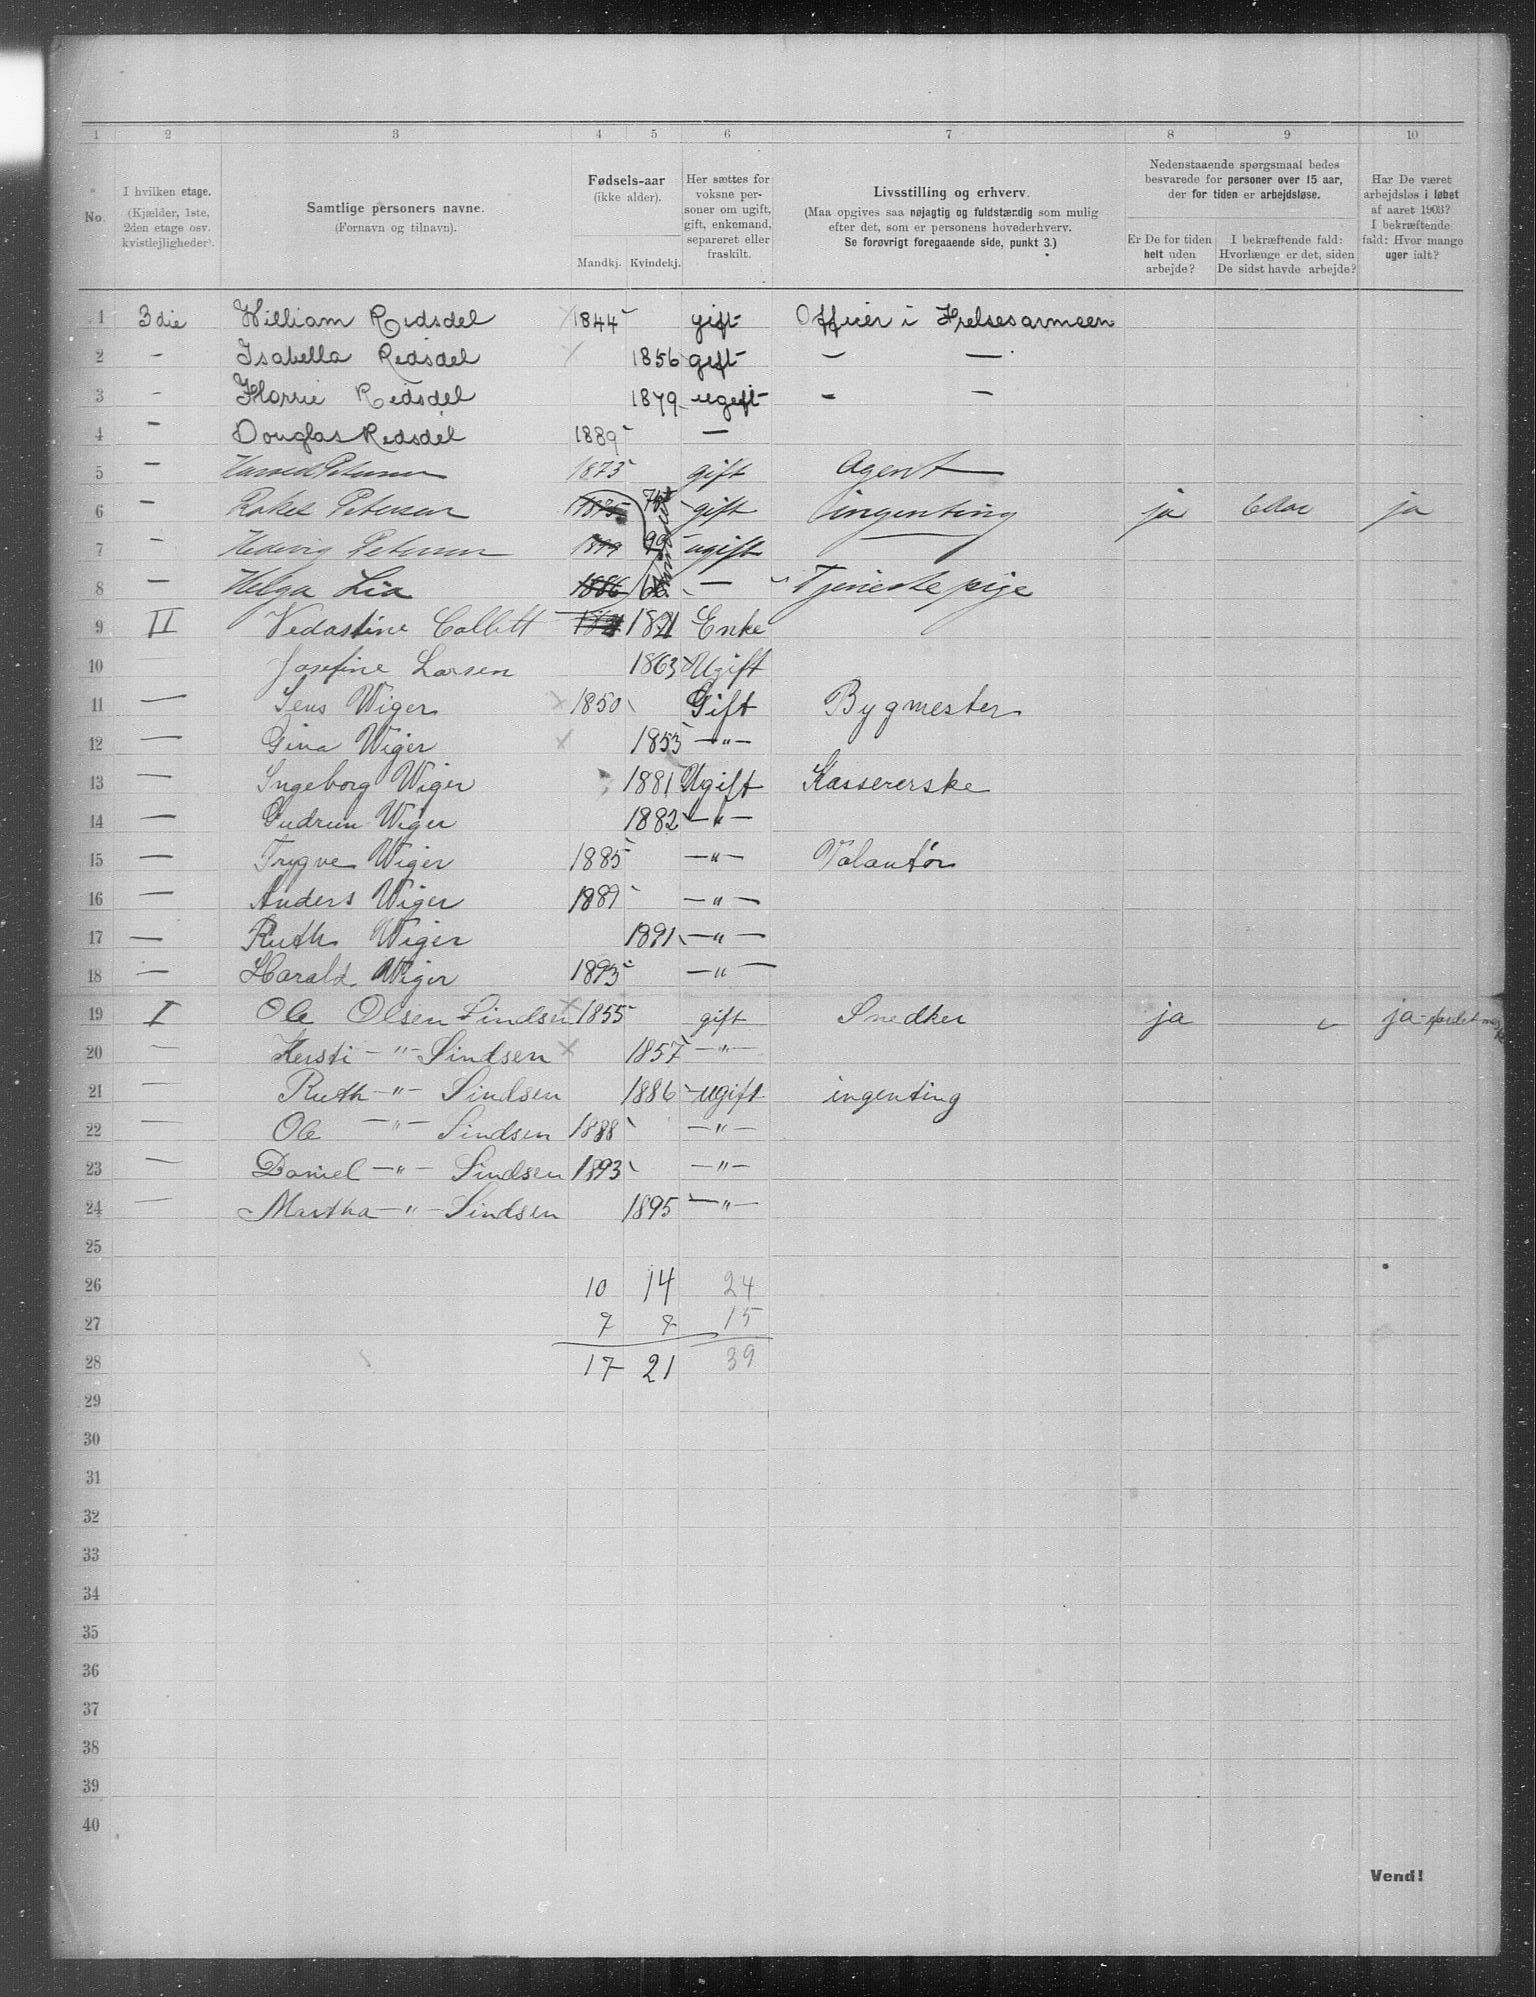 1 2 3 4 5 6 7 8 9 10
No.
I hvilken etage.
(Kjælder, 1ste,
2den etage osv.
kvistlejligheder).
Samtlige personers navne.
(Fornavn og tilnavn).
Fødsels-aar
(ikke alder).
Mandkj. Kvindekj.
Her sættes for
voksne per-
soner om ugift,
gift, enkemand,
separeret eller
fraskilt.
Livsstilling og erhverv.
(Maa opgives saa nøjagtig og fuldstændig som mulig
efter det, som er personens hovederhverv.
Se forøvrigt foregaaende side, punkt 3.)
Nedenstaaende spørgsmaal bedes
besvarede for personer over 15 aar,
der for tiden er arbejdsløse.
Er De for tiden
helt uden
arbejde?
I bekræftende fald:
Hvorlænge er det, siden
De sidst havde arbejde?
Har De været
arbejdsløs i løbet
af aaret 1903?
I bekræftende
fald: Hvor mange
uger ialt?
1 3die William Redsdel 1844 gift Officer i Frelsesarmeen
2 - Isabella Redsdel 1856 gift - -
3 - Florrie Redsdel 1879 ugift - -
4 - Douglas Redsdel 1889 -
5 - Petersen 1873 gift Agent
6 - Petersen 1875 75 gift ingenting ja ja
7 - Hedvig Petersen 1899 99 ugift
8 - Helga Lia 1886 - Tjenestepige
9 II Vedastine Collett 1821 1821 Enke
10 Josefine Larsen 1863 Ugift
11 - Jens Wiger 1850 Gift Bygmester
12 - Gina Wiger 1853 -"-
13 - Ingeborg Wiger 1881 Ugift Kassererske
14 - Gudrun Wiger 1882 -"-
15 - Trygve Wiger 1885 -"- Volantør
16 - Anders Wiger 1889 -"-
17 - Ruth Wiger 1891 -"-
18 - Harald Wiger 1893 -"-
19 I Ole Olsen Sindsen 1855 gift Snedker ja ja
20 - Kersti -"- Sindsen 1857 -"-
21 - Ruth -"- Sindsen 1886 ugift ingenting
22 - Ole -"- Sindsen 1888 -"-
23 - Daniel -"- Sindsen 1893 -"-
24 - Martha -"- Sindsen 1895 -"-
25
26 10 14 24
27 7 7 15
28 17 21 39
29
30
31
32
33
34
35
36
37
38
39
40
Vend!